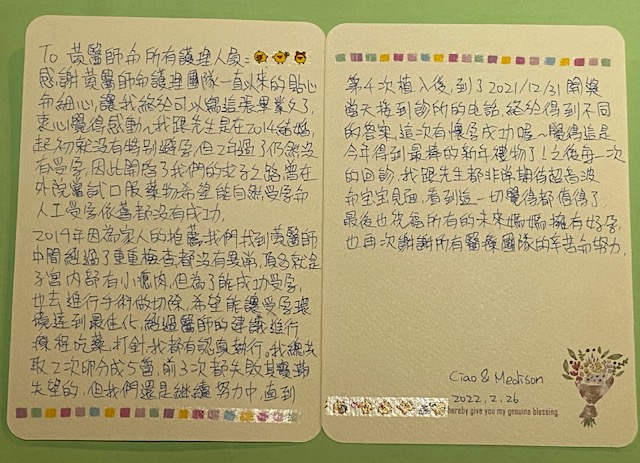 To 黃醫師和所有護理人員：
感謝黃醫師和護理團隊一直以來的貼心
和細心，讓我終於可以寫這張畢業文了，
衷心覺得感動~我跟先生是在2014結婚，
起初就沒有特別避孕，但2年過了仍然沒
有受孕，因此開啓了我們的求子之路，曾在
外院嘗試口服藥物希望能自然受孕和
人工受孕依舊都沒有成功.
2019年因為家人的推薦，我們找到黃醫師
中間經過了重重檢查都沒有異常，頂多就是
子宮內部有小瘜肉，但為了能成功受孕，
也去進行手術做切除，希望能讓受孕環
境達到最佳化，經過醫師的建議進行
療程吃藥，打針，我都有認真執行。我總共
取2次卵分成5管，前3次都失敗其實蠻
失望的，但我們還是繼續努力中，直到
第4次植入後，到了2021/12/31開獎
當天接到診所的電話，終於得到不同
的答案，這次有懷孕成功喔~覺得這是
今年得到最棒的新年禮物了！之後每一次
的回診，我跟先生都非常期待超音波
和寶寶見面，看到這一切覺得都值得了，
最後也祝福所有的未來媽媽擁有好孕，
也再次謝謝所有醫療團隊的辛苦和努力.
Ciao & Medison
2022.2.26
hereby give you my genuine blessing